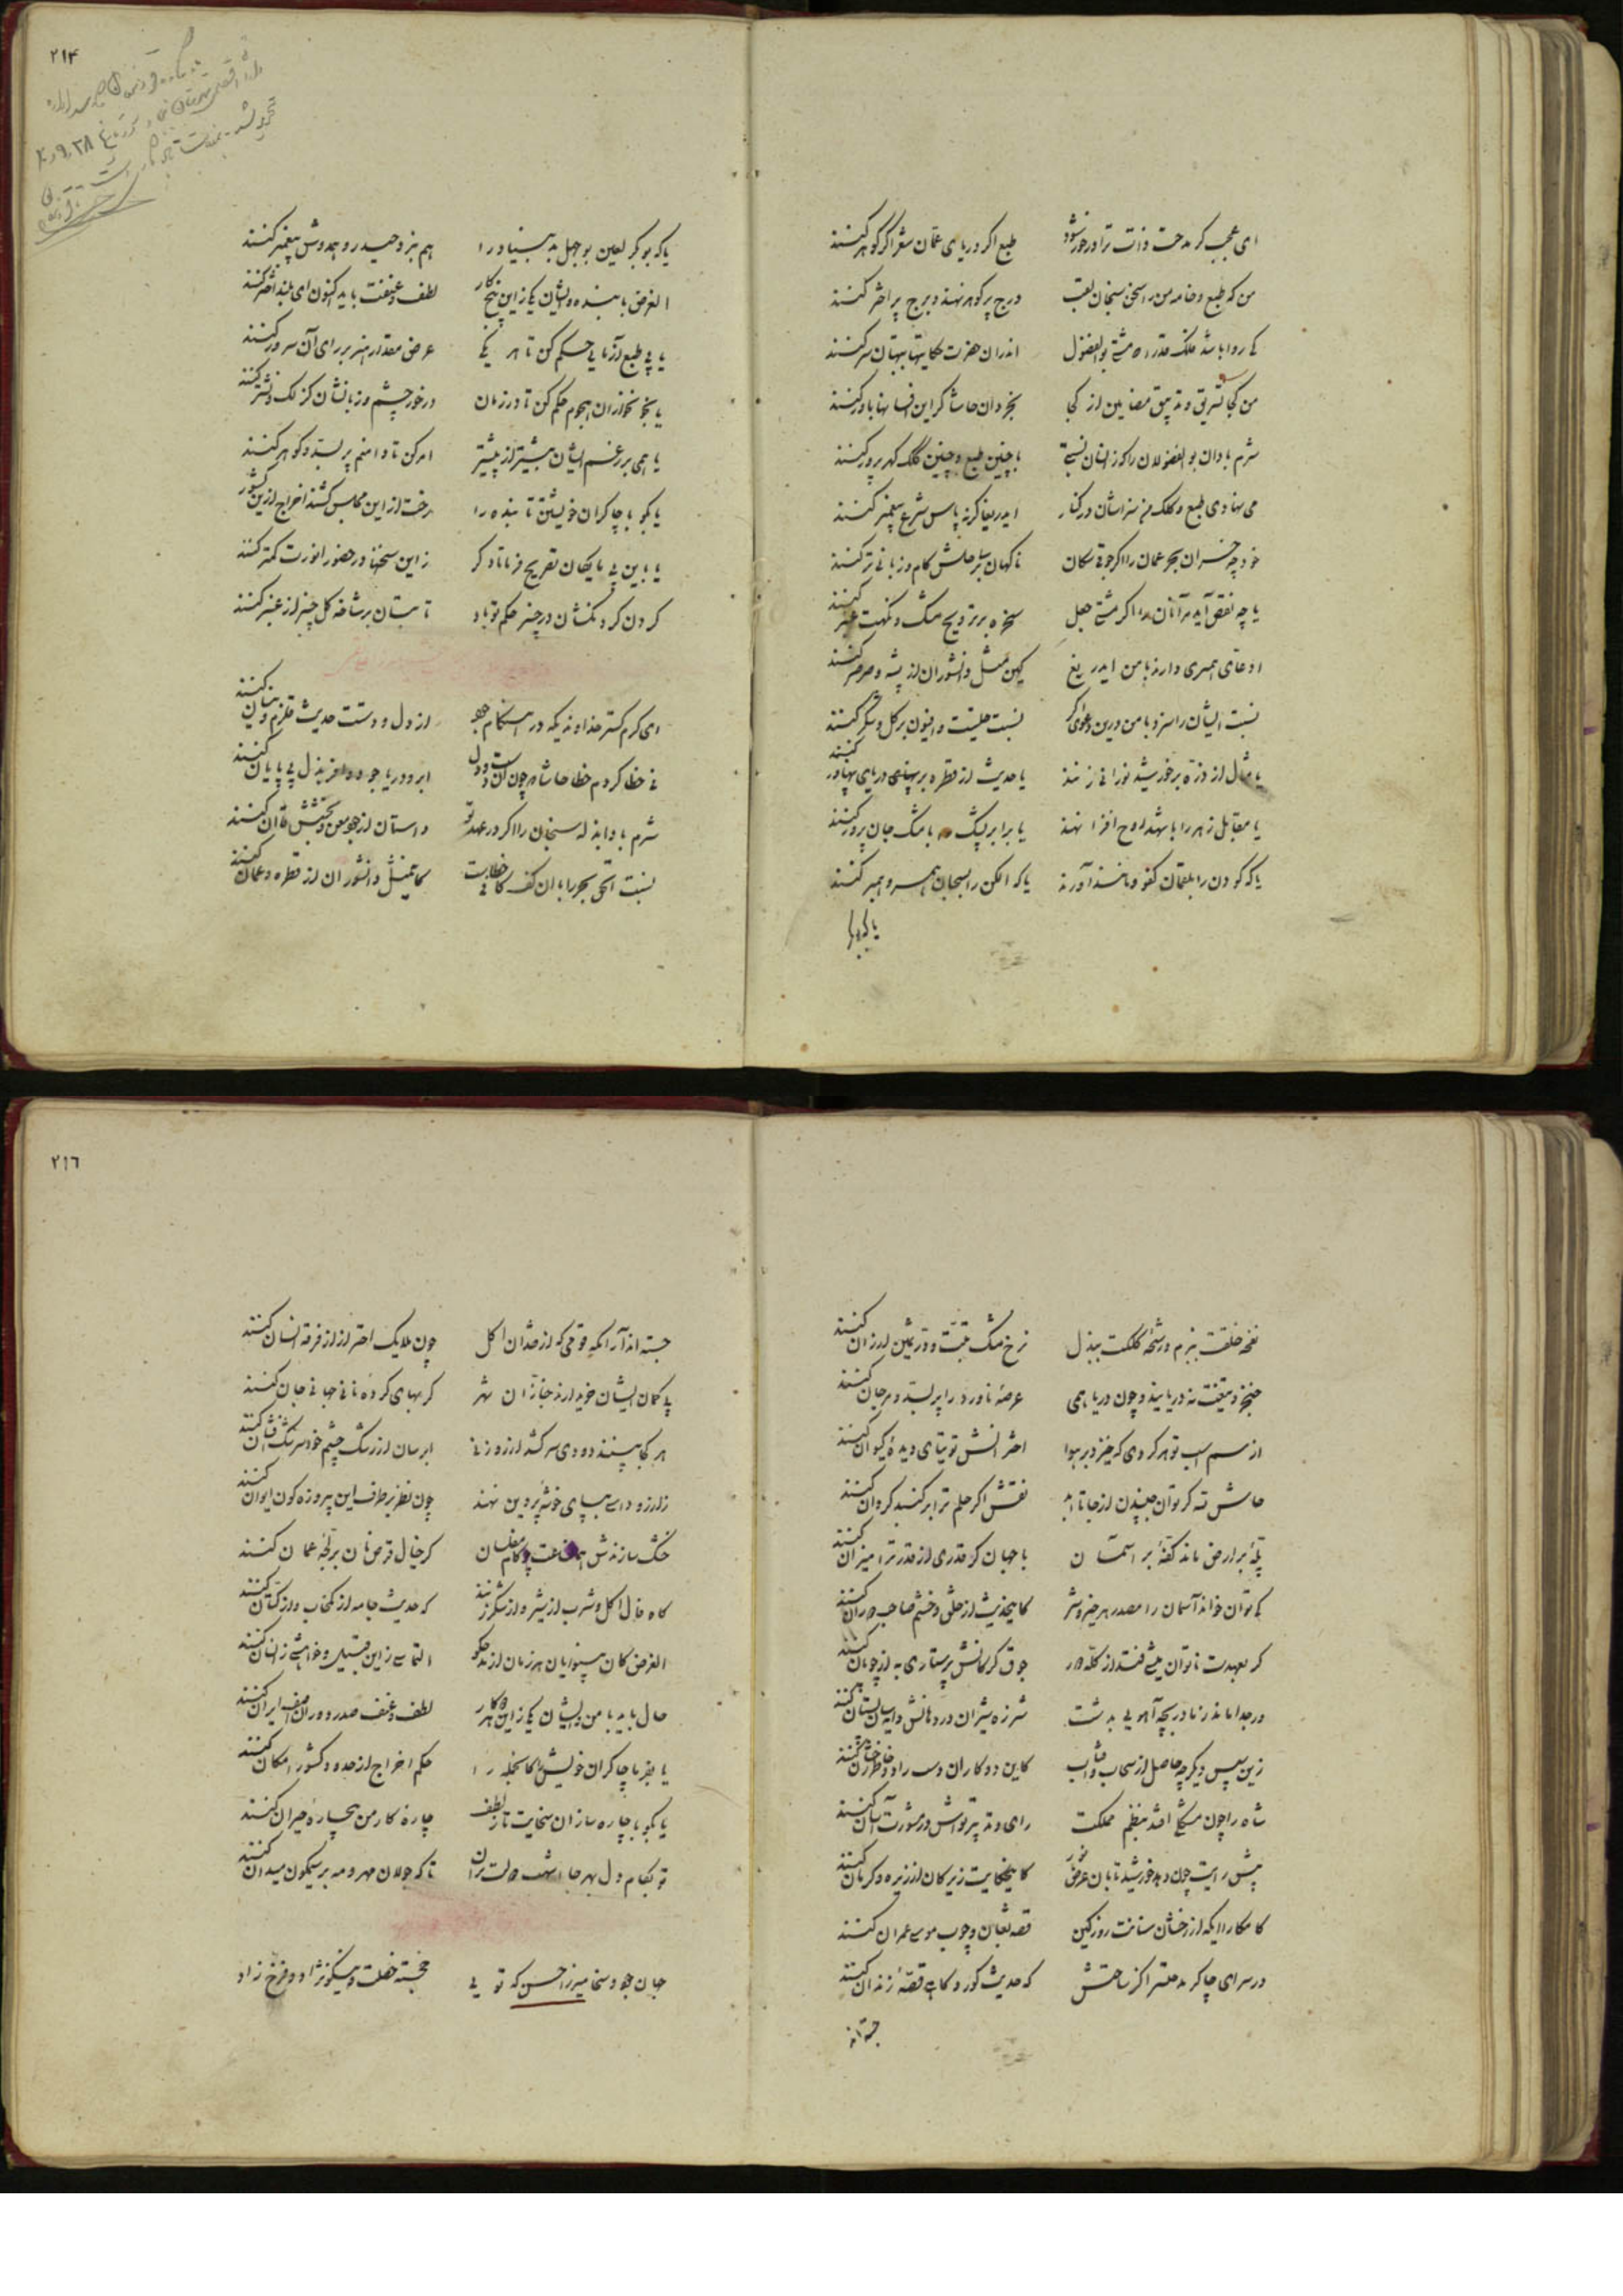 ای عجب کز مدحت ذات ترا درخور شود طبع اگر دریای عمان شعر اگر گوهر کنند
من که طبع و خامه من را سخن سنجان لقب درج پر گوهر نهند و برج پر اختر کنند
کی روا باشد فلک قدرا که مشتی بوالفضول اندران حضرت حکایتها بهتان سر کنند
من کجا تسرق و تذییق مضامین از کجا بخردان حاشا کز این افسانها باور کنند
شرم بادان بوالفضولان را کز انسان نسبتی با چنین طبع و چنین کلک گهرپرور کنند
می نهادی طبع و کلک سزاشان در کنار ایدریغا گر نه پاس شرع پیغمبر کنند
خود چه خسران بحر عمان را اگر جوقی سکان ناگهان بر ساحلش کام و زبانی تر کنند
یا چه نقص آید مر آنان را اگر مشتی جعل سخره بر ترویح مشک و نکهت عنبر کنند
ادعای همسری دارند با من ایدریغ کی مثل دانشوران از پشه و صرصر کنند
نسبت ایشان را سزد با من درین دعوی اگر نسبت حلتیت و افیون بر گل و شکر کنند
یا مثال از ذره بر خورشید نورانی زنند یا حدیث از قطره بر پهنای دریای پهناور کنند
یا مقابل زهر را با شهد روح افزا نهند یا برابر پشک را با مشک جان پرور کنند
یا که کودن را بلقمان کفو و مانند آورند یا که الکن را بسحبان همسر و همبر کنند
یا که بو
۲۱۴
یا که بوبکر لعین بوجهل بد بنیاد را هم بر حیدر و همدوش پیغمبر کنند
الغرض با بنده و ایشان یکی زاین پنج کار لطف و عنفت باید اکنون ای بلند اختر کنند
یا پی طبع آزمایی حکم کن تا هر یکی عرض مقدار هنر بر رای آن سرور کنند
یا بخونخواران هجوم حکم کن تا در زمان در خور چشم و زبانشان کزلک و نشتر کنند
یا همی بر رغم ایشان بیشتر از پیشتر امر کن تا دامنم پر بسد و گوهر کنند
یا بگو با چاکران خویشتن تا بنده را رخت از این مجلس کشند اخراج ازین کشور کنند
یا باین بی مایگان تصریح فرما تا دگر زاین سخنها در حضور انورت کمتر کنند
گردن گردنکشان در چنبر حکم تو باد تا بتان بر شاخه گل چنبر از عنبر کنند
ای کرم گستر خداوندیکه در هنگام جود از دل و دستت حدیث قلزم و نیسان کنند
نی خطا کردم خطا حاشا که چون آن دست و دل ابر و دریا جود وافر بذل بی پایان کنند
شرم بادا بذله سنجان را اگر در عهد تو داستان از جود معن و بخشش قاآن کنند
نسبت الحق بحر را با آن کف کافی خطاست کی تمثل دانشوران از قطره و عمان کنند
نفحه خلقت ببزم و رشحه کلکت ببذل نرخ مشک تبت و در ثمین ارزان کنند
خنجر و تیغت نه دریایند و چون دریا همی عرصه ناورد را پر بسد و مرجان کنند
از سم اسب تو هر گردی که خیزد بر هوا اخترانش توتیای دیده کیوان کنند
حاش لله گر توان جنبیدن از جا تا ابد نقش اگر حلم ترا بر گنبد گردان کنند
پله بر ارض ماند کفه بر آسمان با جهان گر قدری از قدر ترا میزان کنند
کی توان خواند آسمان را مصدر هر خیر و شر کاینحدیث از خلق و خشم صاحب دوران کنند
گر بعهدت ناتوان میشی فتد از گله دور جوق گرگانش پرستاری به از چوپان کنند
ور جدا ماند ز مادر بچه آهویی بدشت شرزه شیران در دهانش دایه سان پستان کنند
زین سپس دیگر چه حاصل از سحاب و آفتاب کاین دو کاران دست راد و خاطر رخشان کنند
شاه را چون مشکلی افتد بنظم مملکت رای و تدبیر تواش در مشورت آسان کنند
پیش رایت چون دهد خورشید تابان عرض نور کاینحکایت زیرکان از زیره و کرمان کنند
کامکارا ایکه از رخشان سنانت روز کین قصه ثعبان و چوب موسی عمران کنند
در سرای چاکر مدحتسرا کز ساحتش که حدیث گور و گاهی قصه زندان کنند
جسته اند
۲۱۶
جسته اند آرامگه قومی که از فقدان اکل چون ملایک احتراز از فرقه انسان کنند
پا کمان ایشان خریدارند خبازان شهر گر بهای گرده نانی جهانی جان کنند
هر کجا بینند دودی سر کشد از روزنی ابرسان از رشک چشم خود سرشک افشان کنند
ز آرزو داسی بپای خوشه پروین نهند چون نظر بر طرف این پیروزه گون ایوان کنند
خشک سازندش همانساعت چو کام مفلسان گر خیال قرص نان بر لجه عمان کنند
گاه فال اکل و شرب از شیر و از شکر زنند گه حدیث جامه از کمخاب و از کتان کنند
الغرض کان بینوایان هر زمان از مدحگو التماسی زین قبیل و خواهشی زانسان کنند
حال باید با من و ایشان یکی زاین هر دو کار لطف و عنف صدر دوران آصف ایران کنند
یا بفرما چاکران خویش را کاینجمله را حکم اخراج از حدود کشور امکان کنند
یا بگو با چاره سازان سخایت تا ز لطف چاره کار من بیچاره حیران کنند
تو بکام دل بهر جا اشهب دولت بران تا که جولان مهر و مه بر نیلگون میدان کنند
جهان جود و سخا میرزا حسن که تویی خجسته خصلت و نیکونژاد و فرخ زاد